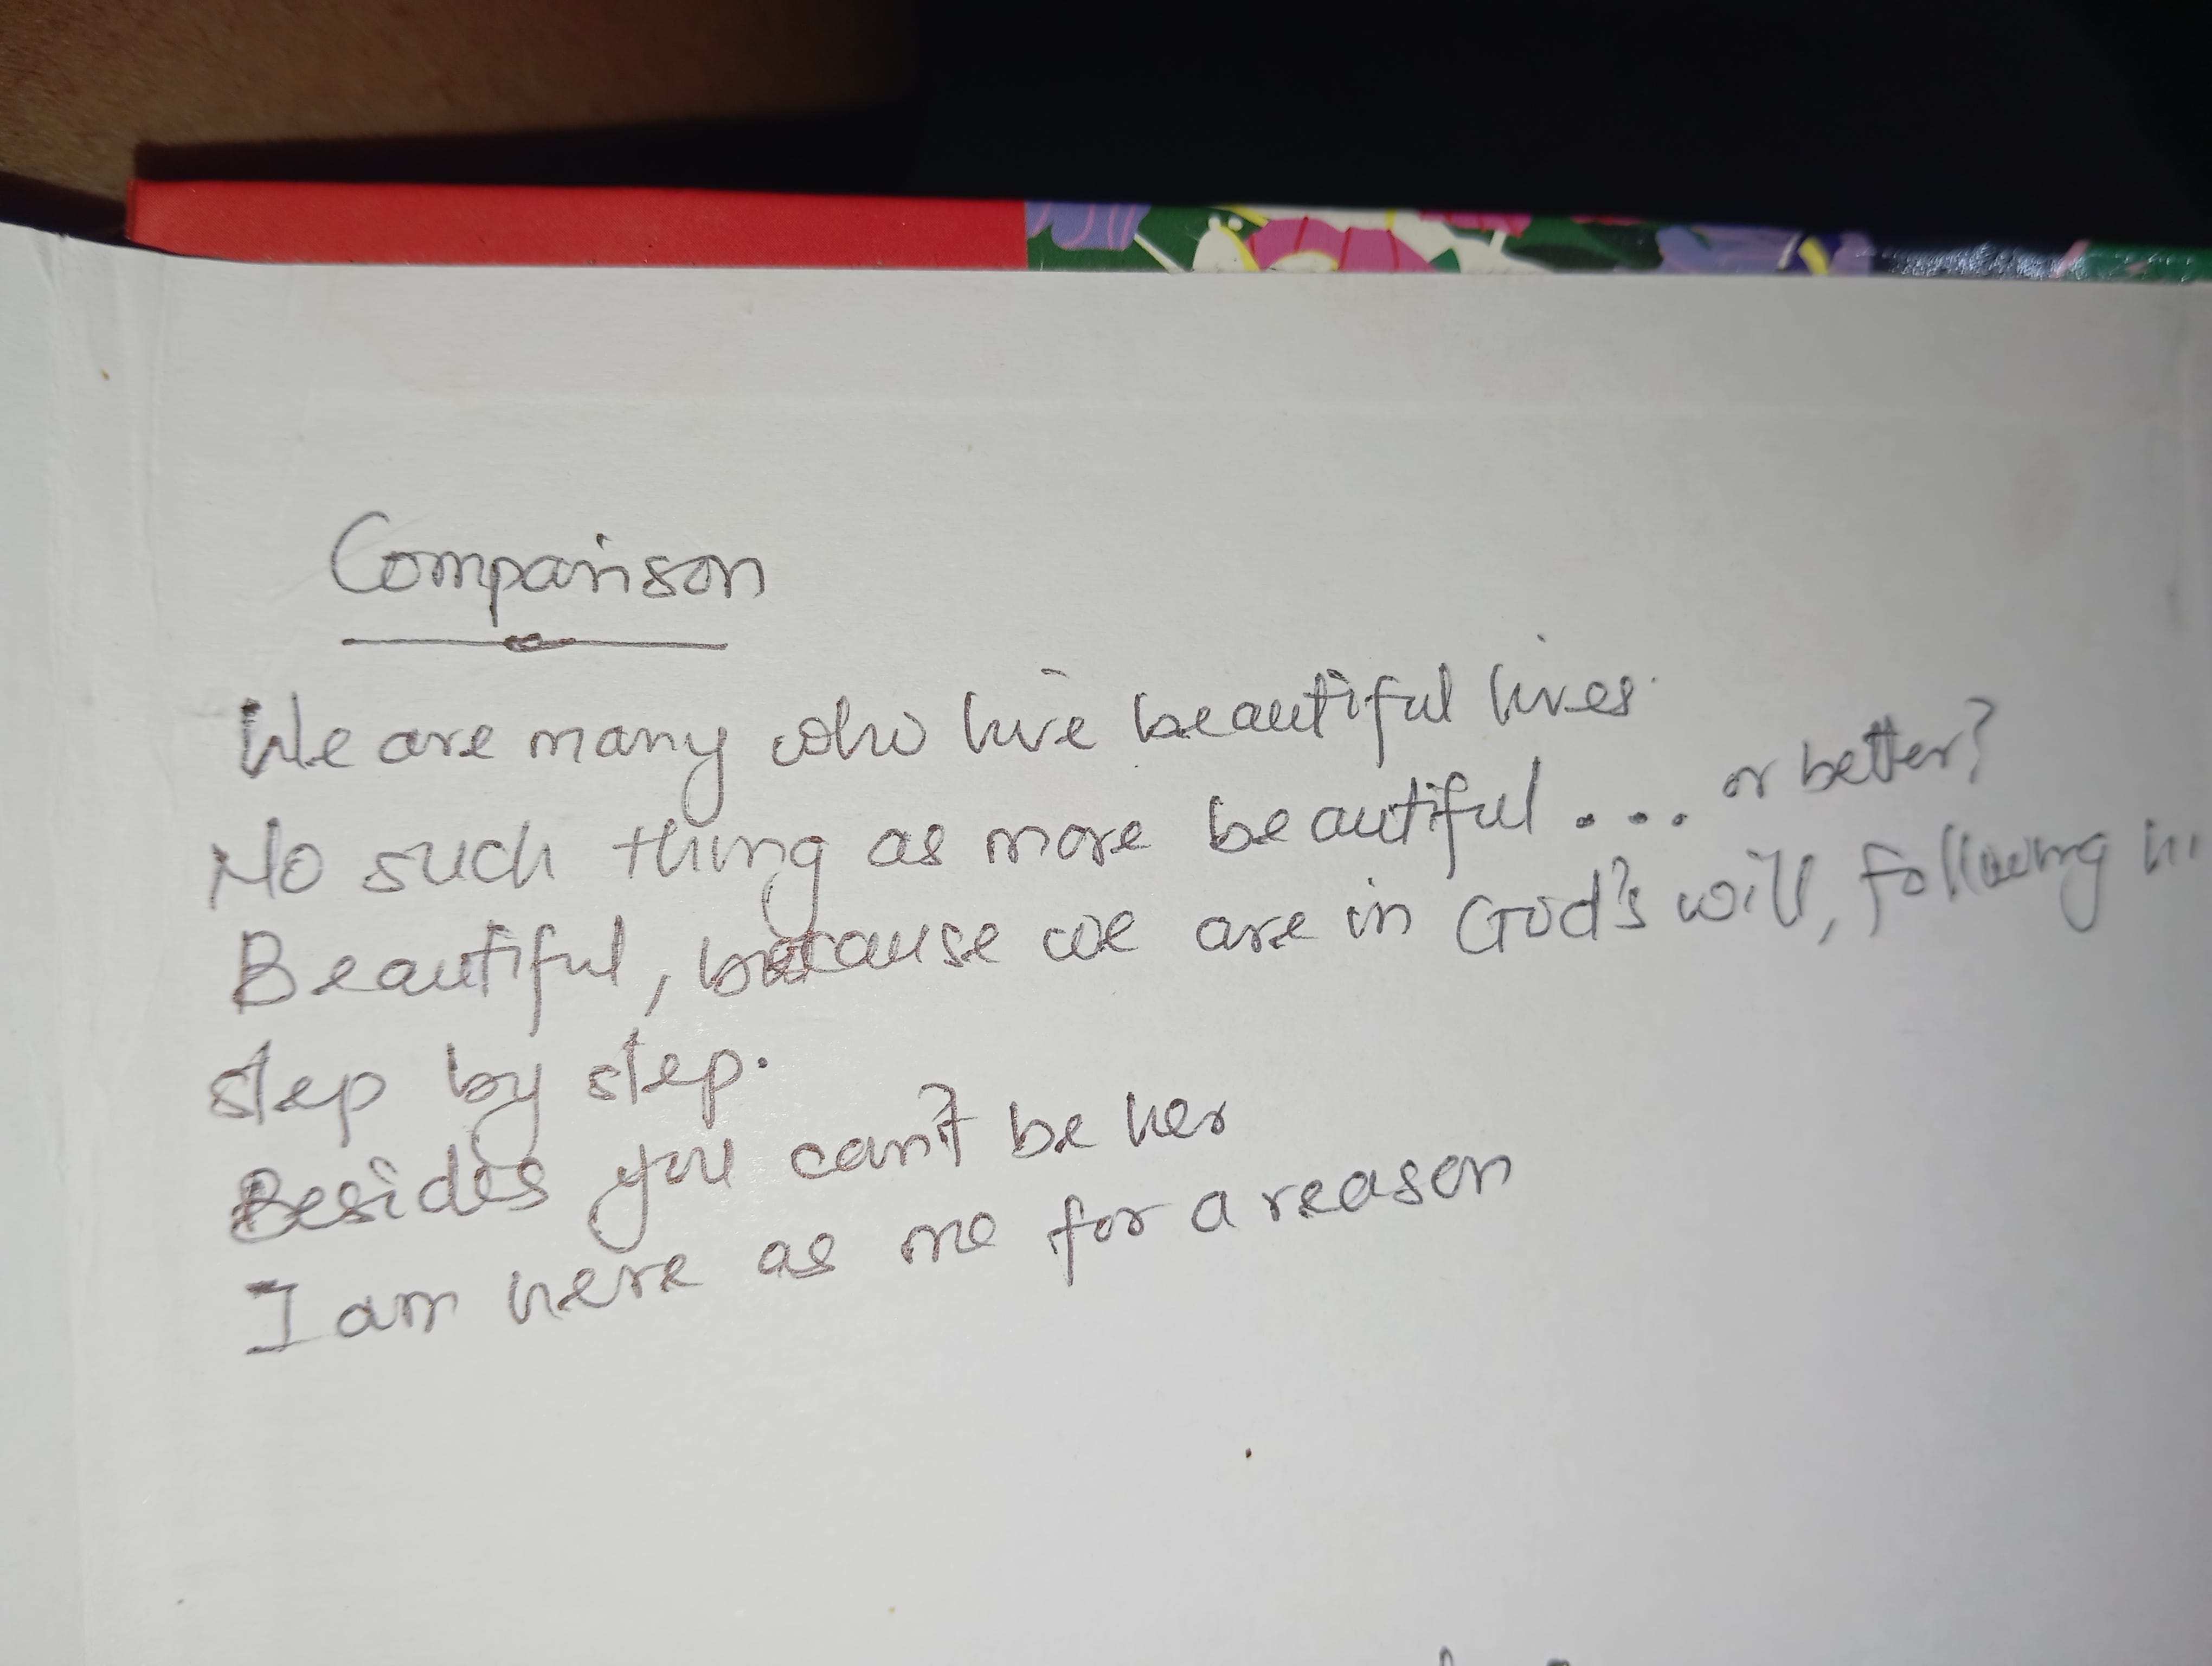 Comparison
We are many who live beautiful lives.
No such thing as more beautiful... or better?
Beautiful, because we are in God's will, following
step by step.
Besides you can't be her
I am here as me for a reason